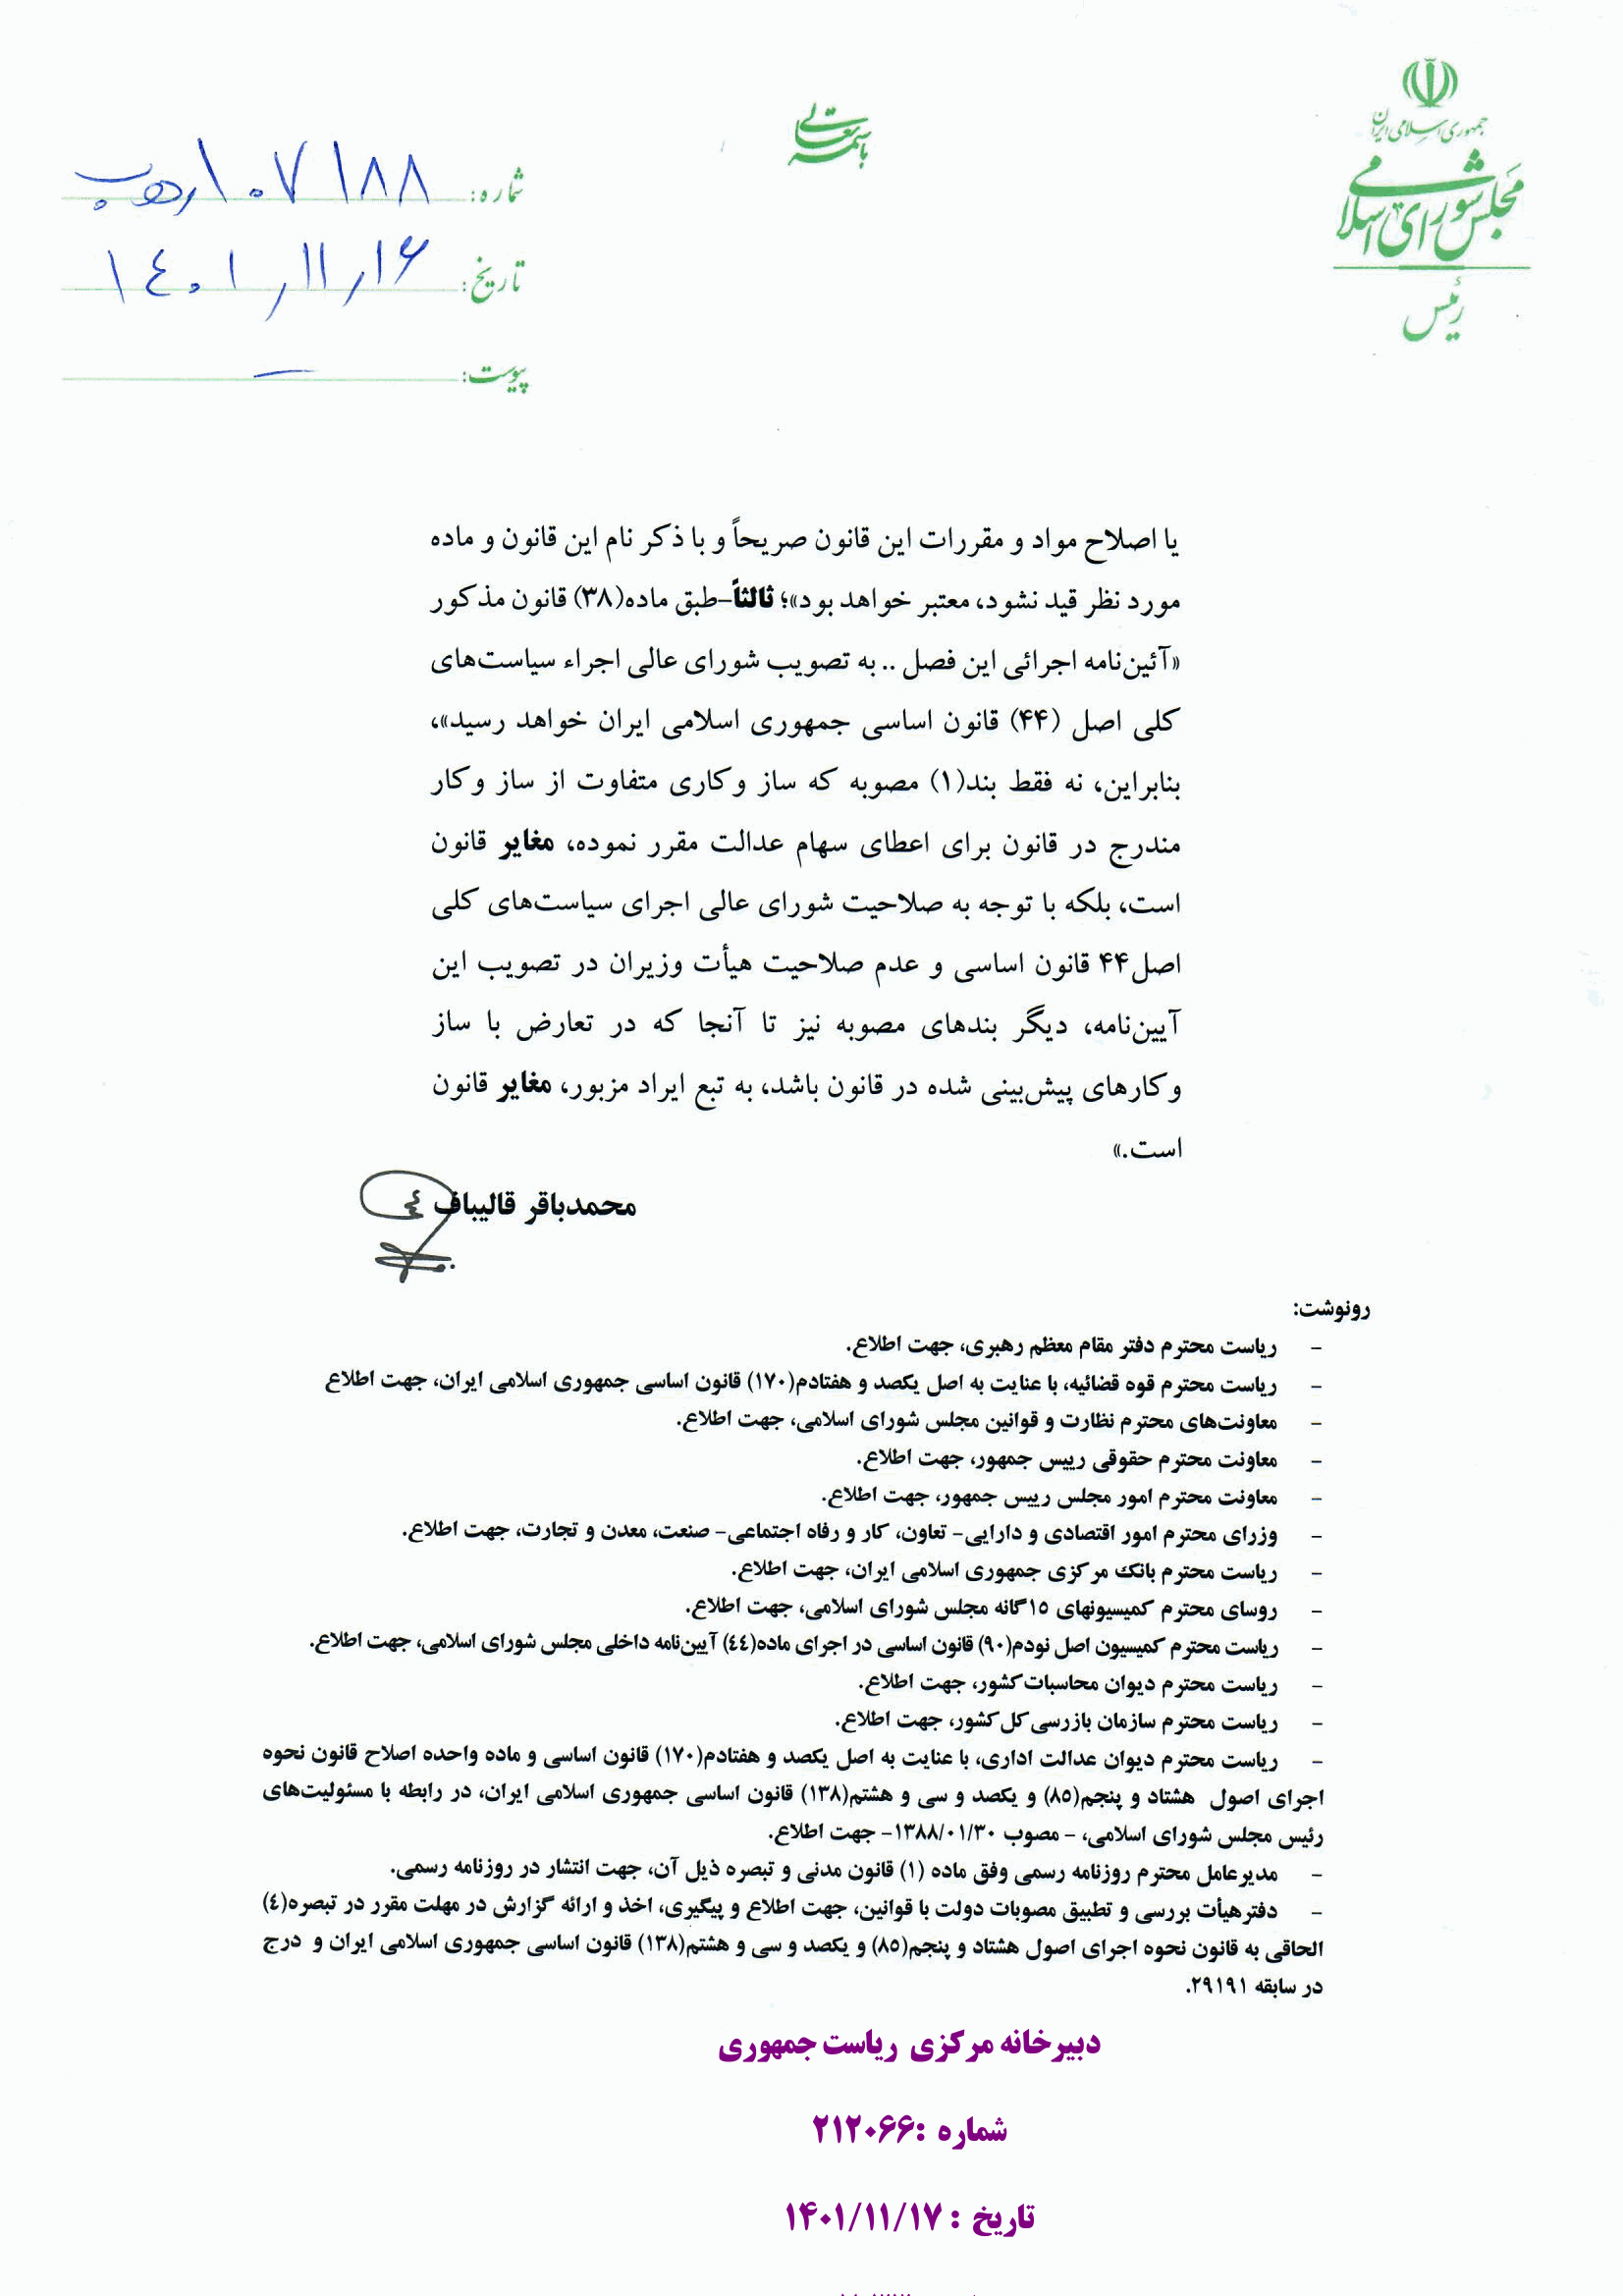 جمهوری اسلامی ایران
مجلس شورای اسلامی
رئیس
باسمه تعالی
شماره: ۱۰۷۱۸۸/هـ ب
تاریخ: ۱٤۰۱/۱۱/۱۶
پیوست: —
یا اصلاح مواد و مقررات این قانون صریحاً و با ذکر نام این قانون و ماده
مورد نظر قید نشود، معتبر خواهد بود»؛ ثالثاً–طبق ماده(۳۸) قانون مذکور
«آئین‌نامه اجرائی این فصل .. به تصویب شورای عالی اجراء سیاست‌های
کلی اصل (۴۴) قانون اساسی جمهوری اسلامی ایران خواهد رسید»،
بنابراین، نه فقط بند(۱) مصوبه که ساز وکاری متفاوت از ساز وکار
مندرج در قانون برای اعطای سهام عدالت مقرر نموده، مغایر قانون
است، بلکه با توجه به صلاحیت شورای عالی اجرای سیاست‌های کلی
اصل۴۴ قانون اساسی و عدم صلاحیت هیأت وزیران در تصویب این
آیین‌نامه، دیگر بندهای مصوبه نیز تا آنجا که در تعارض با ساز
وکارهای پیش‌بینی شده در قانون باشد، به تبع ایراد مزبور، مغایر قانون
است.»
محمدباقر قالیباف
رونوشت:
– ریاست محترم دفتر مقام معظم رهبری، جهت اطلاع.
– ریاست محترم قوه قضائیه، با عنایت به اصل یکصد و هفتادم(۱۷۰) قانون اساسی جمهوری اسلامی ایران، جهت اطلاع
– معاونت‌های محترم نظارت و قوانین مجلس شورای اسلامی، جهت اطلاع.
– معاونت محترم حقوقی رییس جمهور، جهت اطلاع.
– معاونت محترم امور مجلس رییس جمهور، جهت اطلاع.
– وزرای محترم امور اقتصادی و دارایی– تعاون، کار و رفاه اجتماعی– صنعت، معدن و تجارت، جهت اطلاع.
– ریاست محترم بانک مرکزی جمهوری اسلامی ایران، جهت اطلاع.
– روسای محترم کمیسیونهای ۱۵گانه مجلس شورای اسلامی، جهت اطلاع.
– ریاست محترم کمیسیون اصل نودم(۹۰) قانون اساسی در اجرای ماده(٤٤) آیین‌نامه داخلی مجلس شورای اسلامی، جهت اطلاع.
– ریاست محترم دیوان محاسبات کشور، جهت اطلاع.
– ریاست محترم سازمان بازرسی کل کشور، جهت اطلاع.
– ریاست محترم دیوان عدالت اداری، با عنایت به اصل یکصد و هفتادم(۱۷۰) قانون اساسی و ماده واحده اصلاح قانون نحوه
اجرای اصول هشتاد و پنجم(۸۵) و یکصد و سی و هشتم(۱۳۸) قانون اساسی جمهوری اسلامی ایران، در رابطه با مسئولیت‌های
رئیس مجلس شورای اسلامی، – مصوب ۱۳۸۸/۰۱/۳۰– جهت اطلاع.
– مدیرعامل محترم روزنامه رسمی وفق ماده (۱) قانون مدنی و تبصره ذیل آن، جهت انتشار در روزنامه رسمی.
– دفترهیأت بررسی و تطبیق مصوبات دولت با قوانین، جهت اطلاع و پیگیری، اخذ و ارائه گزارش در مهلت مقرر در تبصره(٤)
الحاقی به قانون نحوه اجرای اصول هشتاد و پنجم(۸۵) و یکصد و سی و هشتم(۱۳۸) قانون اساسی جمهوری اسلامی ایران و درج
در سابقه ۲۹۱۹۱.
دبیرخانه مرکزی ریاست جمهوری
شماره :۲۱۲۰۶۶
تاریخ : ۱۴۰۱/۱۱/۱۷